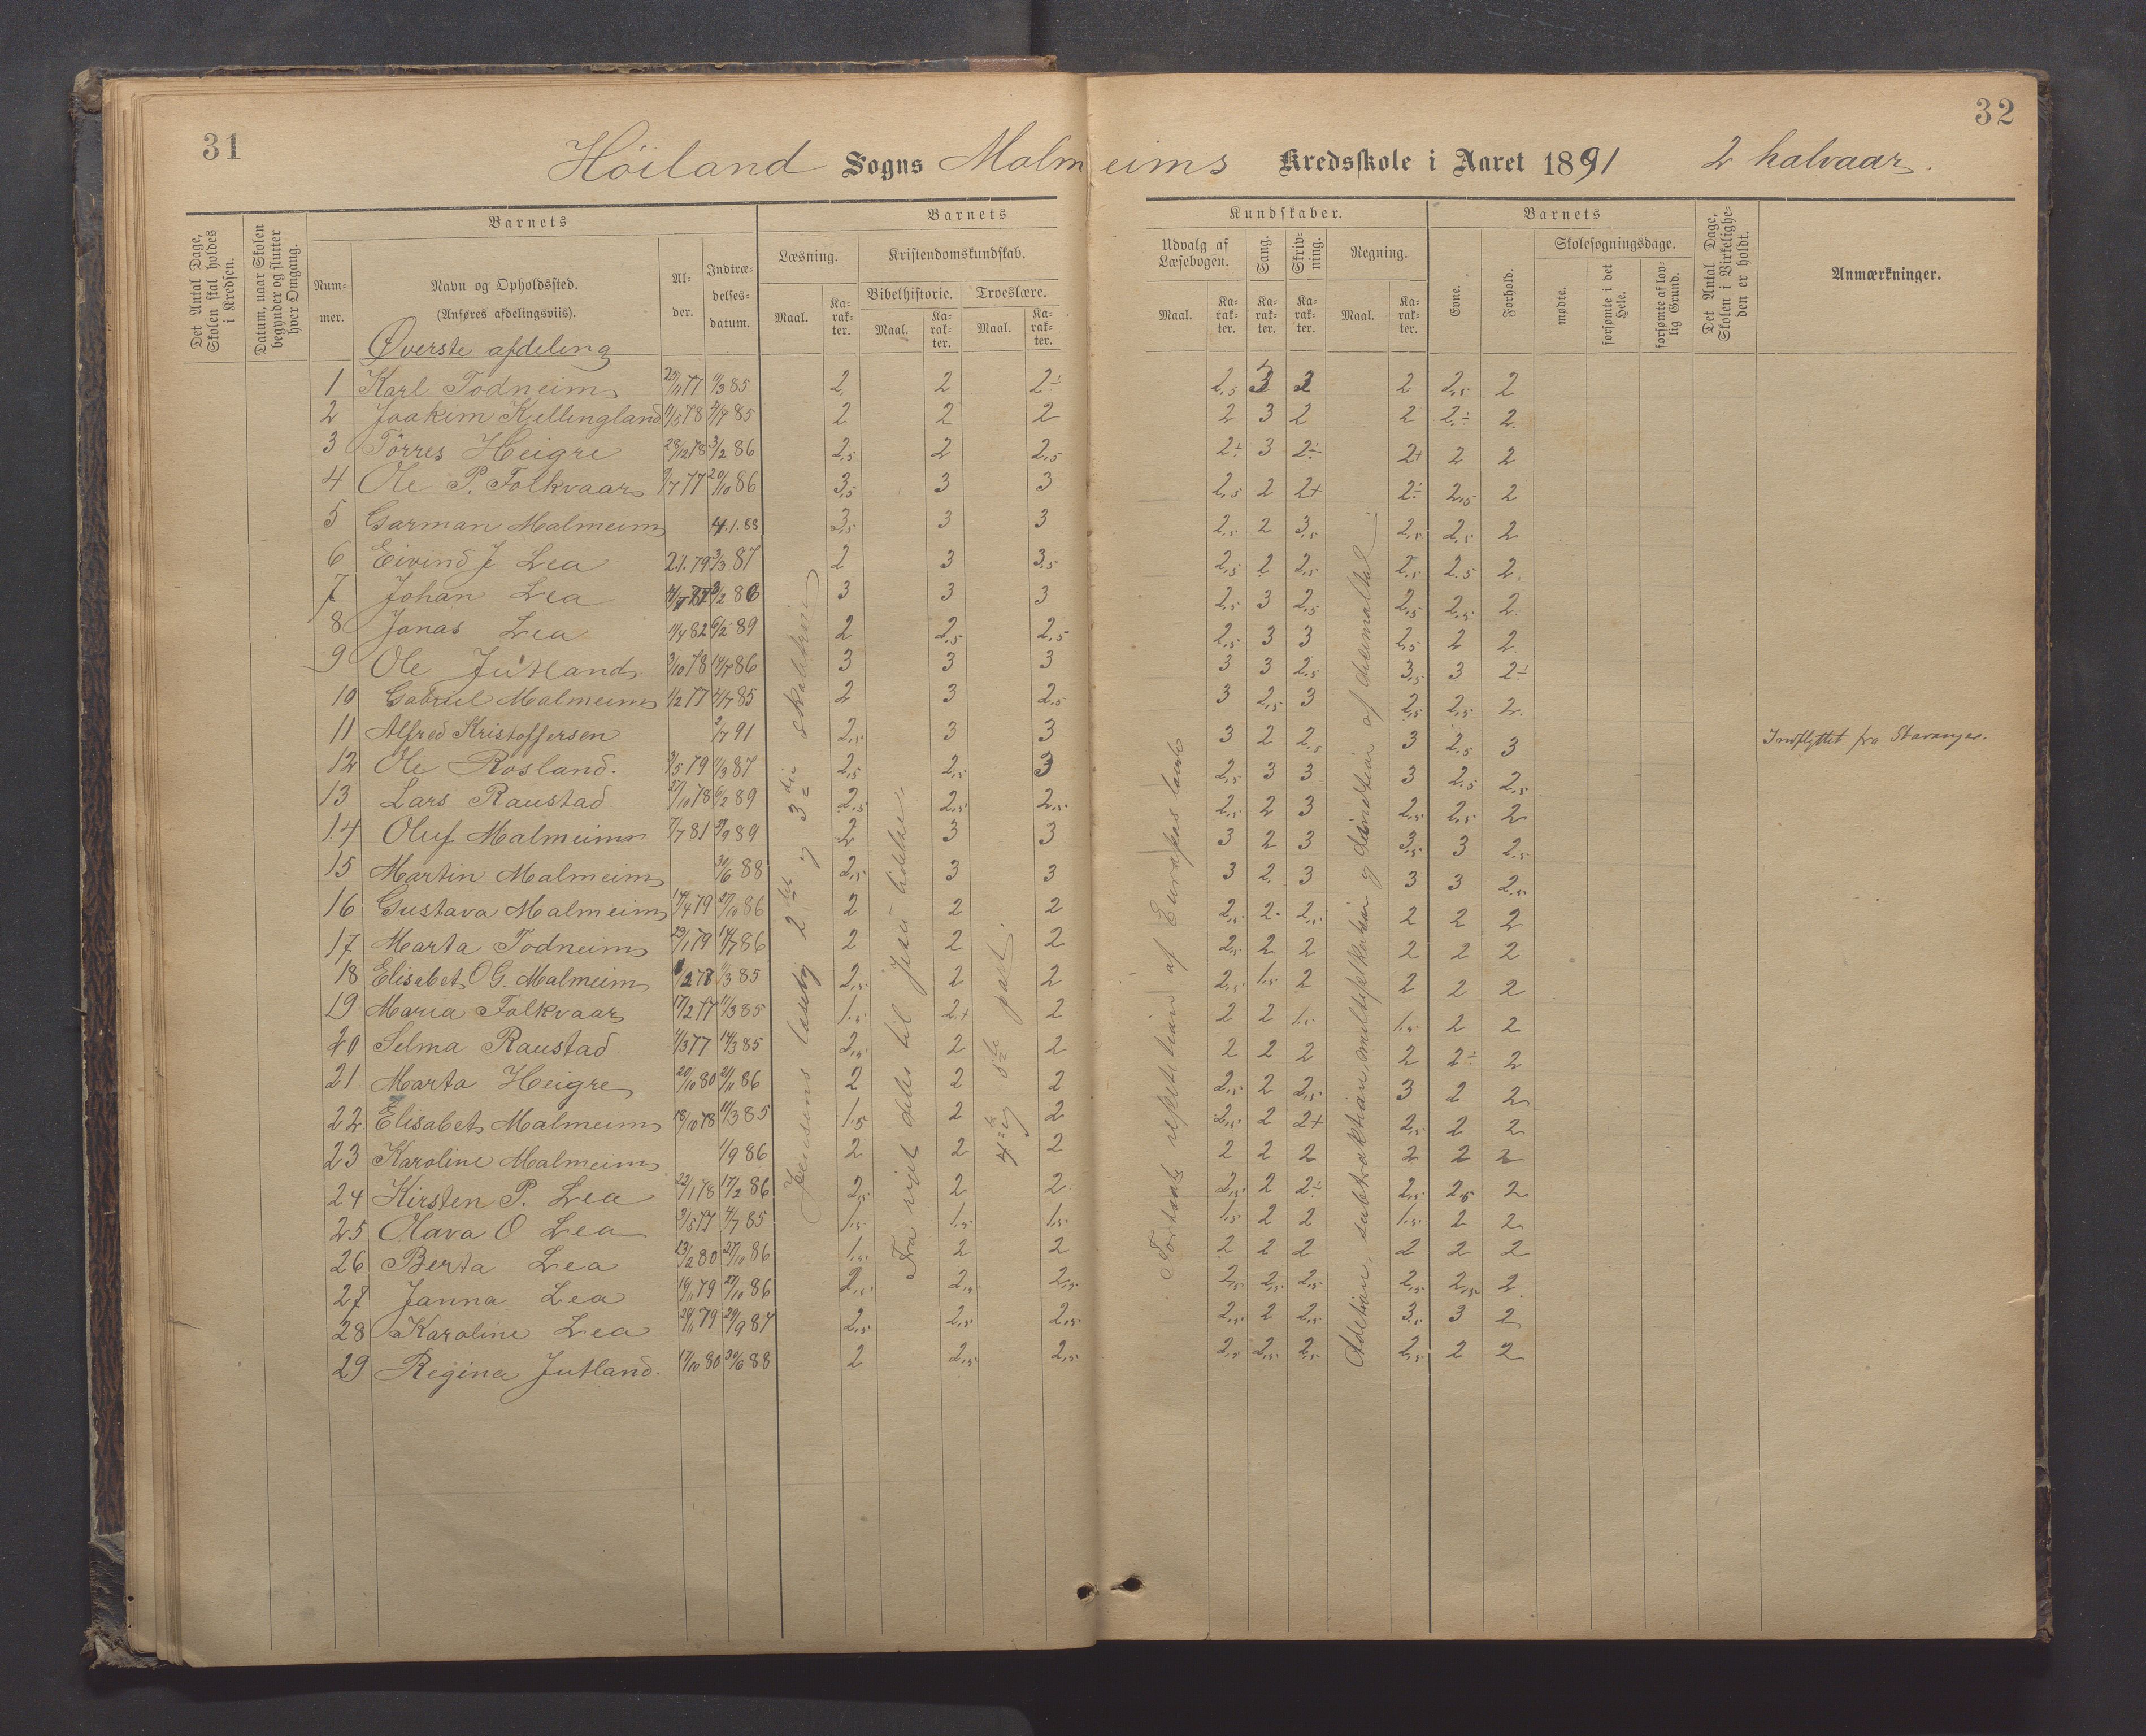 31
32
Höiland Sogns Malmeims Kredsskole i Aaret 1891 2 halvaar.
Det Antal Dage, Skolen skal holdes i Kredsen.
Datum, naar Skolen begynder og slutter hver Omgang.
Barnets
Nummer.
Navn og Opholdssted.
(Anføres afdelingsviis).
Alder.
Indtrædelsesdatum.
Barnets
Læsning.
Maal.
Karakter.
Kristendomskundskab.
Bibelhistorie.
Maal.
Karakter.
Troeslære.
Maal.
Karakter.
Kundskaber.
Udvalg af Læsebogen.
Maal.
Karakter.
Sang.
Karakter.
Skrivning.
Karakter.
Regning.
Maal.
Karakter.
Barnets
Evne.
Forhold.
Skolesøgningsdage.
mødte.
forsømte i det Hele.
forsømte af lovlig Grund.
Det Antal Dage, Skolen i Virkeligheden er holdt.
Anmærkninger.
Øverste afdeling
1 Karl Todneim 25/11 77 11/3 85 2 2 2÷ 2,5 3 2 2,5 2
2 Joakim Kellingland 11/5 78 85 2 2 2 2 3 2 2 2÷ 2
3 Törres Heigre 28/12 78 3/2 86 2,5 2 2,5 2÷ 3 2÷ 2+ 2 2
4 Ole P. Folkvaar 9/7 77 20/10 86 3,5 3 3 2,5 2 2+ 2÷ 2,5 2
5 Garman Malmeim 4.1.88 3,5 3 3 2,5 2 3,5 2,5 2,5 2
6 Eivind J Lea 2.1.79 3/3 87 2 3 3,5 2,5 2 2,5 2,5 2.5 2
7 Johan Lea 3 3 3 2,5 3 2,5 2,5 2,5 2
8 Jonas Lea 11/4 82 6/2 89 2 2,5 2,5 2,5 3 3 2,5 2 2
9 Ole Jutland 3/10 78 14/7 86 3 3 3 3 3 2,5 3,5 3 2÷
10 Gabriel Malmeim 1/2 77 4/7 85 2 3 2,5 3 2,5 3 2,5 2,5 2
11 Alfred Kristoffersen 2/7 91 2,5 3 3 3 2 2,5 3 2,5 3 Indflyttet fra Stavanger.
12 Ole Rosland. 9/5 79 11/3 87 2,5 2,5 3 2,5 3 3 3 2,5 2,5
13 Lars Raustad 27/10 78 6/2 89 2,5 2,5 2,5 2,5 2 3 2,5 2,5 2
14 Oluf Malmeim 7/7 81 27/9 89 2 3 3 3 2 3 3,5 3 2,5
15 Martin Malmeim 30/6 88 2,5 3 3 3 2 3 3 3 2,5
16 Gustava Malmeim 17/4 79 27/10 86 2 2 2 2,5 2 2,5 2 2 2
17 Marta Todneim 29/1 79 14/7 86 2 2 2 2,5 2 2 2 2 2
18 Elisabet O G. Malmeim 11/3 85 2,5 2 2 2,5 1,5 2 2 2 2
19 Maria Folkvaar 17/2 77 11/3 85 1,5 2+ 2 2 2 1,5 1,5 2 2
20 Selma Raustad. 4/3 77 14/3 85 2,5 2 2 2 2 2 2 2÷ 2
21 Marta Heigre 20/10 80 21/11 86 2 2 2 2,5 2 2,5 3 2 2
22 Elisabet Malmeim 18/10 78 11/3 85 1,5 2 2 2,5 2 2+ 2,5 2 2
23 Karoline Malmeim 1/9 86 2 2 2 2 2 2 2 2 2
24 Kirsten P. Lea 22/1 78 17/2 86 2,5 2 2 2,5 2 2÷ 2,5 2,5 2
25 Olava O Lea 3/5 77 4/7 85 1,5 1,5 1,5 1,5 2 2 1,5 2 2
26 Berta Lea 23/2 80 27/10 86 1,5 2 2 2 2 2 2 2 2
27 Janna Lea 19/11 79 27/10 86 2,5 2,5 2,5 2,5 2,5 2,5 2,5 2,5 2
28 Karoline Lea 29/11 79 29/9 87 2,5 2,5 2,5 2,5 2 2,5 3,5 3 2
29 Regina Jutland. 17/10 80 30/6 88 2 2,5 2,5 2,5 2,5 2,5 2,5 2 2
Jensens læsebog 2det og 3die skoletrin
Fra riget deles til Jesu lidelse.
4de og 5te part.
Fortsat repetition af Europas lande
Adition, subtraktion, multiplikation og division af decimaltal